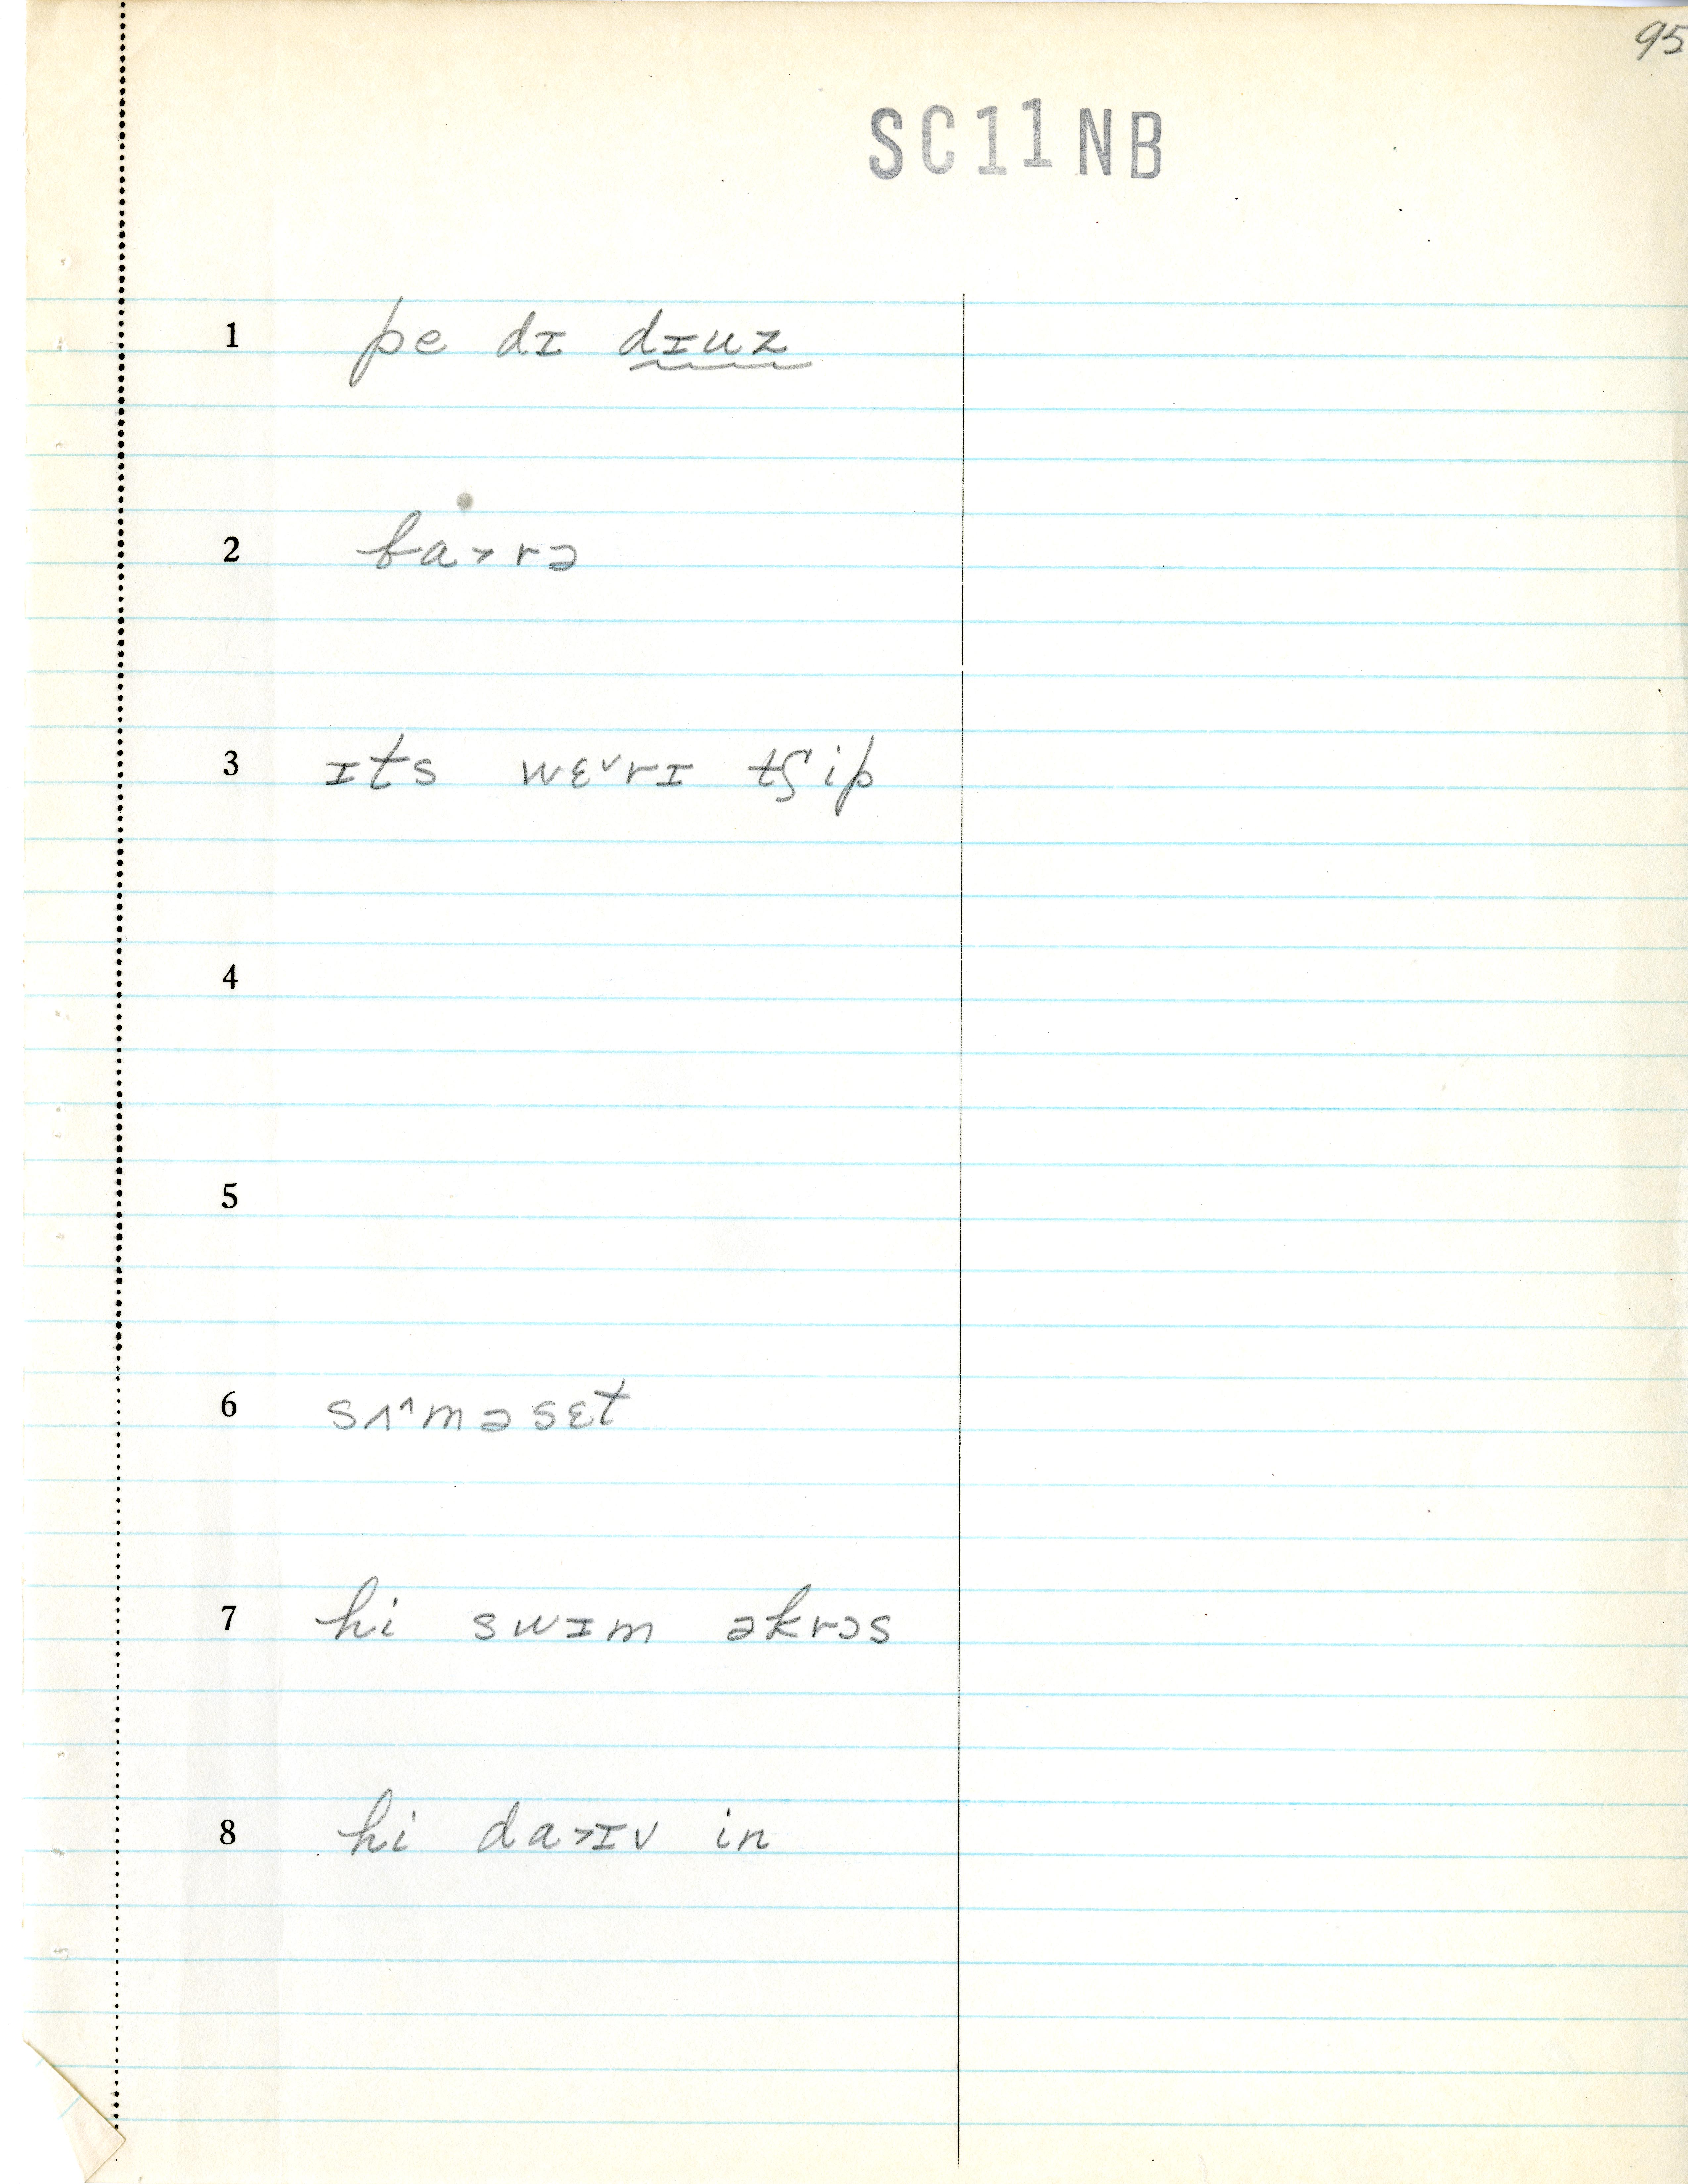 95
SC11NB
1 pe dɪ dɪuz
2 ba˃rə
3 ɪts wɛ˅rɪ tʃip
4
5
6 sʌ˄məsɛt
7 hi swɪm əkrɔs
8 hi da˃ɪv in